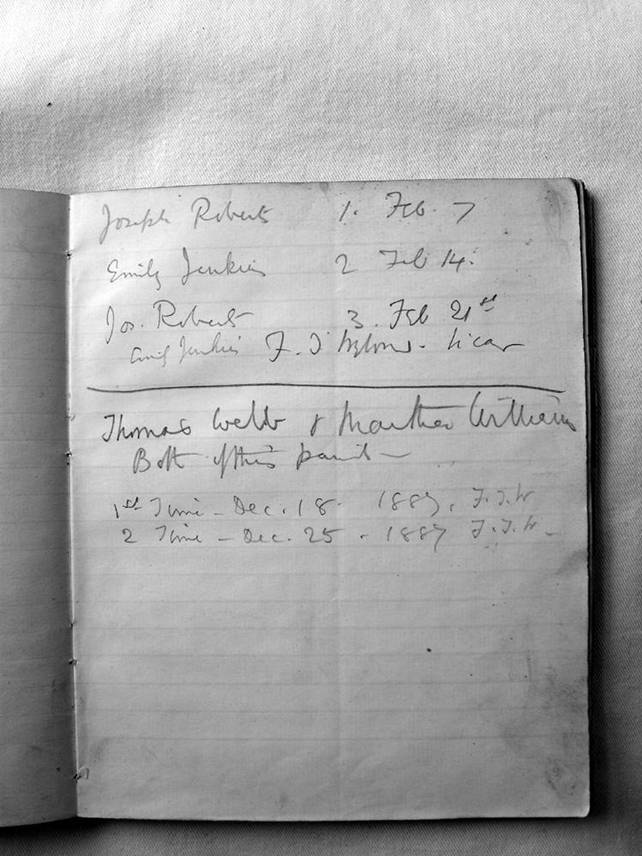 Joseph Roberts 1. Feb. 7
Emily Jenkins 2 Feb 14.
Jos. Roberts 3. Feb 21st
Emily Jenkins F. J. Vicar
Thomas Webb & Martha Williams
Both of this parish
1st Time - Dec. 18. 1887. F.J.W
2 Time - Dec. 25. 1887 F.J.W.